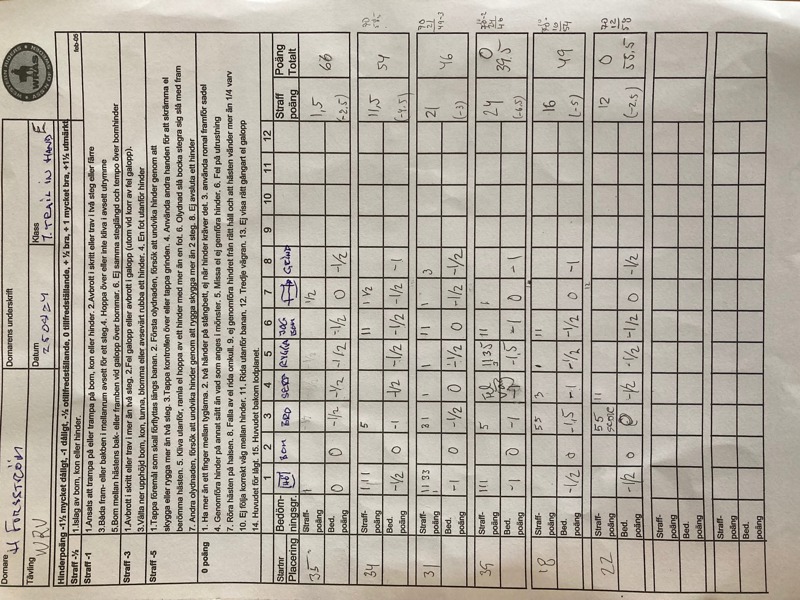 Domare
H Forsström
Domarens underskrift
Tävling
WRV
Datum
250424
Klass
7. TRAIL IN HAND E
WRAS
feb-05
Hinderpoäng -1½ mycket dåligt, -1 dåligt, -½ otillfredställande, 0 tillfredställande, + ½ bra, + 1 mycket bra, +1½ utmärkt
Straff -½
1.Islag av bom, kon eller hinder.
Straff -1
1.Ansats att trampa på eller trampa på bom, kon eller hinder. 2.Avbrott i skritt eller trav i två steg eller färre
3.Båda fram- eller bakben i mellanrum avsett för ett steg.4. Hoppa över eller inte kliva i avsett utrymme
5.Bom mellan hästens bak- eller framben vid galopp över bommar. 6. Ej samma steglängd och tempo över bomhinder
Straff -3
1.Avbrott i skritt eller trav i mer än två steg. 2.Fel galopp eller avbrott i galopp (utom vid korr av fel galopp).
3.Välta ner upphöjd bom, kon, tunna, blomma eller avsevärt rubba ett hinder. 4. En fot utanför hinder
Straff -5
1.Tappa föremål som skall förflyttas längs banan. 2. Första olydnaden, försök att undvika hinder genom att
skygga eller rygga mer än två steg. 3.Tappa kontrollen över eller tappa grinden. 4. Använda andra handen för att skrämma el
berömma hästen. 5. Kliva utanför, ramla el hoppa av ett hinder med mer än en fot. 6. Olydnad slå bocka stegra sig slå med fram
7. Andra olydnaden, försök att undvika hinder genom att rygga skygga mer än 2 steg. 8. Ej avsluta ett hinder
0 poäng
1. Ha mer än ett finger mellan tyglarna. 2. två händer på stångbett, ej när hinder kräver det. 3. använda romal framför sadel
4. Genomföra hinder på annat sätt än vad som anges i mönster. 5. Missa el ej gemföra hinder. 6. Fel på utrustning
7. Röra hästen på halsen. 8. Falla av el rida omkull. 9. ej genomföra hindret från rätt håll och att hästen vänder mer än 1/4 varv
10. Ej följa korrekt väg mellan hinder. 11. Rida utanför banan. 12. Tredje vägran. 13. Ej visa rätt gångart el galopp
14. Huvudet för lågt. 15. Huvudet bakom lodplanet.
Startnr Bedöm- 1 2 3 4 5 6 7 8 9 10 11 12 Straff Poäng
Placering ningsgr. BOM RYGGA GRIND poäng Totalt
35 Straff-poäng ½ 1,5 66
Bed. poäng 0 0 -½ -½ -1½ -½ 0 -½ (-2,5)
34 Straff-poäng 1111 5 111 1½ 11,5 54
Bed. poäng -½ 0 -1 -½ -½ -½ -½ -1 (-4,5)
31 Straff-poäng 11 33 31 1 1 111 1 3 21 46
Bed. poäng -1 0 -½ 0 -1½ 0 -½ -½ (-3)
39 Straff-poäng 111 5 1135 111 24 0
Bed. poäng -1 0 -1 -1,5 -1 0 -1 (-6,5) 39,5
18 Straff-poäng 55 3 11 16 49
Bed. poäng -½ 0 -1,5 -1 -½ -½ 0 -1 (-5)
22 Straff-poäng 55 11 12 0
Bed. poäng -½ 0 0 -½ -½ -½ 0 -½ (-2,5) 55,5
Straff-poäng
Bed. poäng
Straff-poäng
Bed. poäng